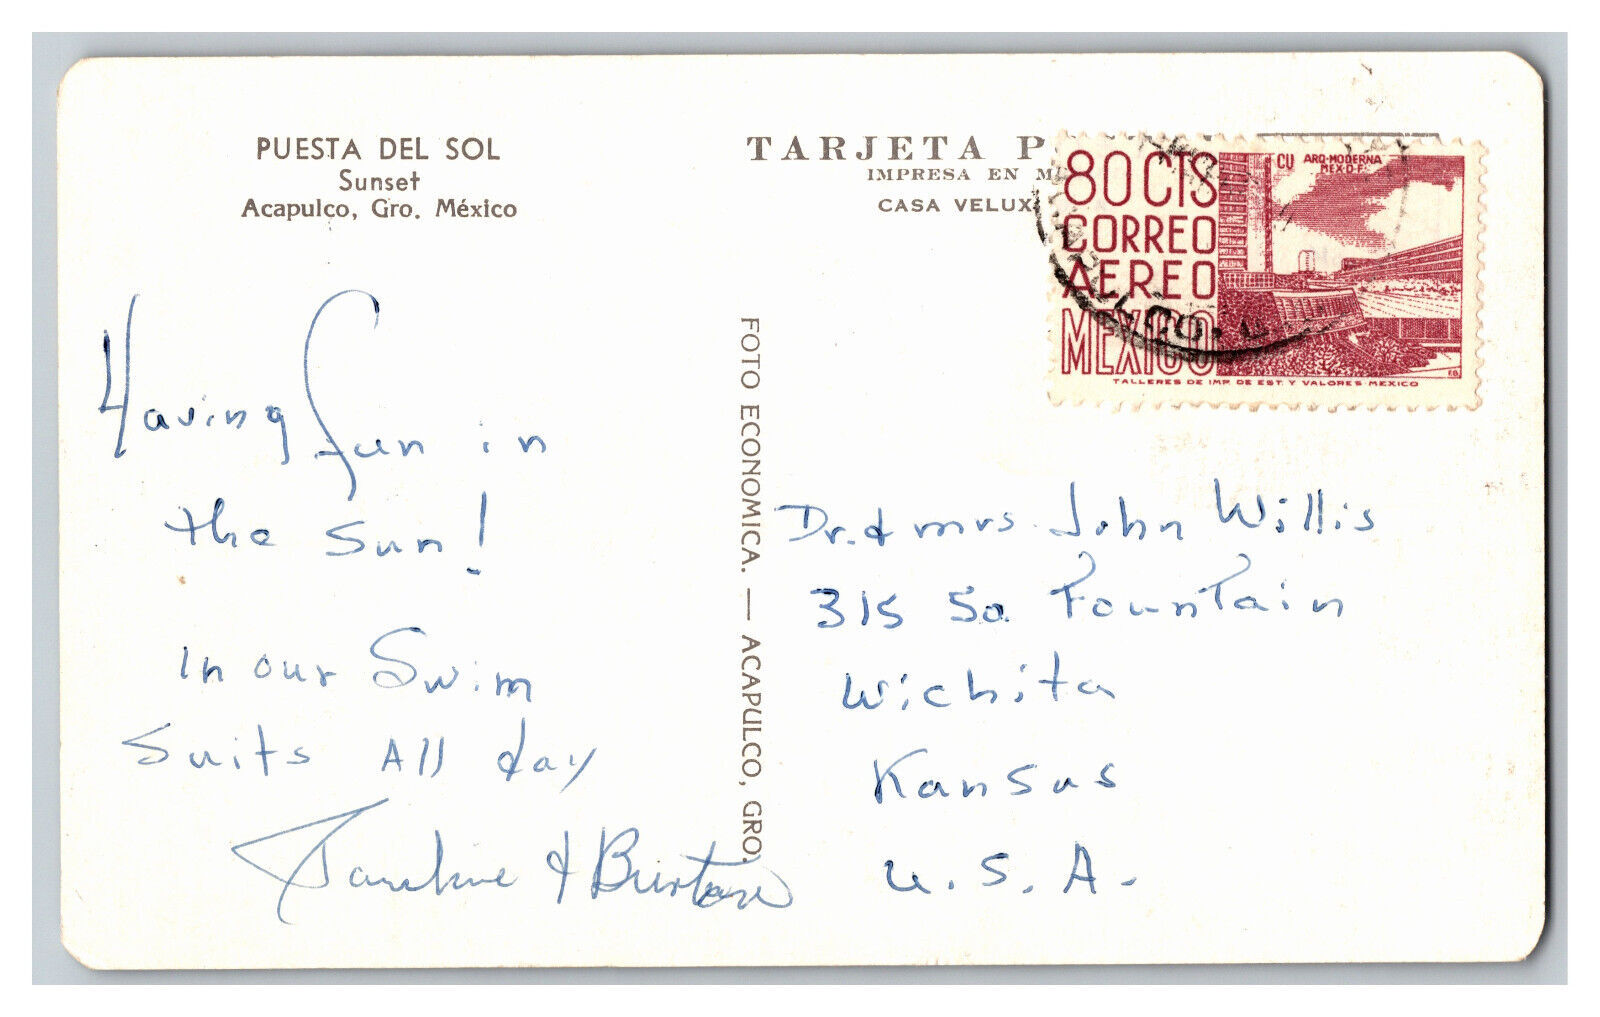 PUESTA DEL SOL
Sunset
Acapulco, Gro. México
Having fun in
the Sun!
in our Swim
Suits All day
Pauline & Burton
FOTO ECONOMICA. — ACAPULCO, GRO.
TARJETA P
IMPRESA EN M
CASA VELUX
80 CTS
CORREO
AEREO
MEXICO
CU ARQ-MODERNA
MEX-D-F-
TALLERES DE IMP. DE EST. Y VALORES-MEXICO
Dr. & mrs. John Willis
315 So. Fountain
Wichita
Kansas
U.S.A.